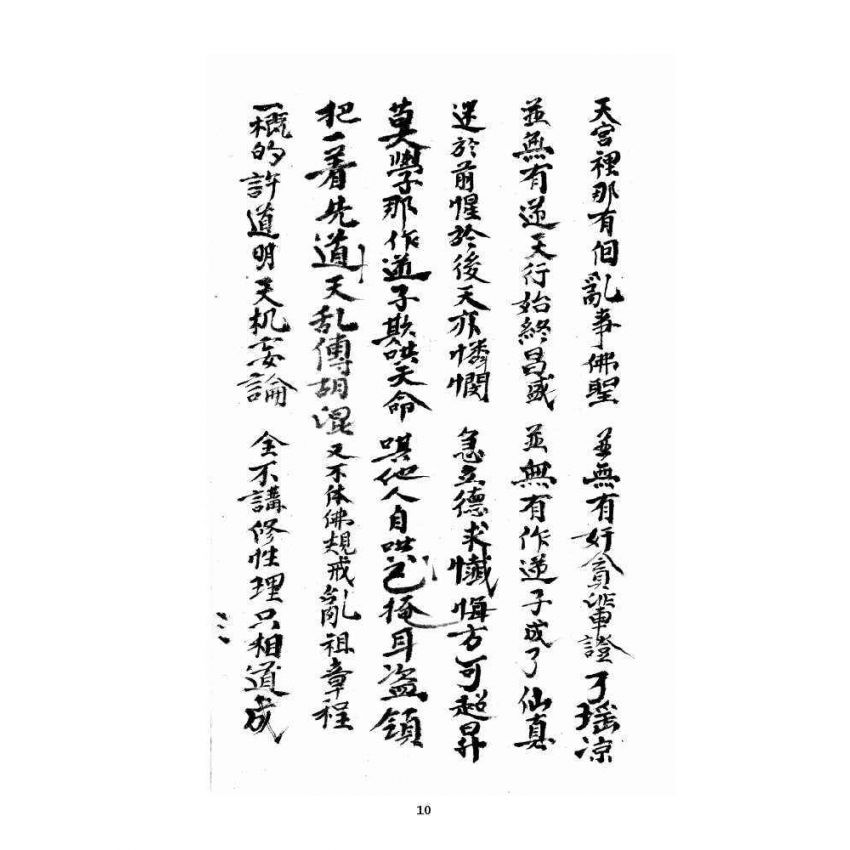 天宮裡那有個亂事佛聖 並無有奸貪輩證了瑤凉
並無有逆天行始終昌盛 並無有作逆子成了仙真
迷於前惺於後天亦憐憫 急立德求懺悔方可超昇
莫學那作逆子欺哄天命 哄他人自哄己掩耳盜領
把一着先道天乱傳胡混 又不体佛規戒亂祖章程
一概的許道明天机妄論 全不講修性理只相道成
10